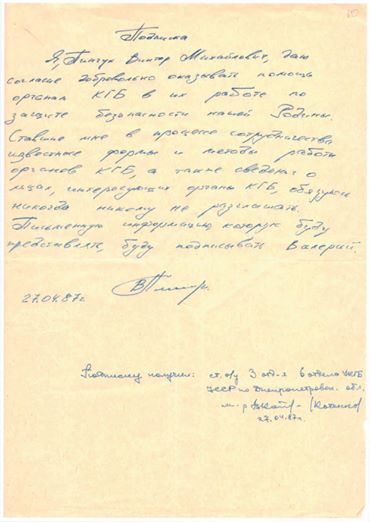 Подписка
Я, Пинчук Виктор Михайлович, даю
согласие добровольно оказывать помощь
органам КГБ в их работе по
защите безопасности нашей Родины.
Ставшие мне в процессе сотрудничества
известные формы и методы работы
органов КГБ, а также сведения о
лицах, интересующих органы КГБ, обязуюсь
никогда никому не разглашать.
Письменную информацию которую буду
представлять, буду подписывать Валерий.
27.04.87г.
Подписку получил: ст. о/у 3 отд-я 6 отдела УКГБ
УССР по Днепропетровск. обл.
м-р
27.04.87г.